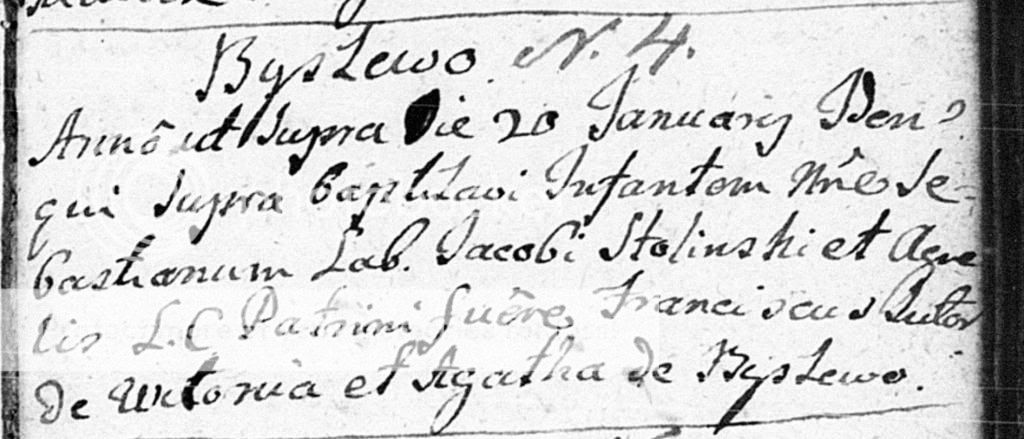 Bysławo N. 4.
Anno ut Supra Die 20 January Idem
qui Supra baptizavi Infantem Nne Se-
bastianum Lab. Jacobi Stolinski et Agne
tis L.C Patrini fuere Franciscus Sutor
de et Agatha de Bysławo.